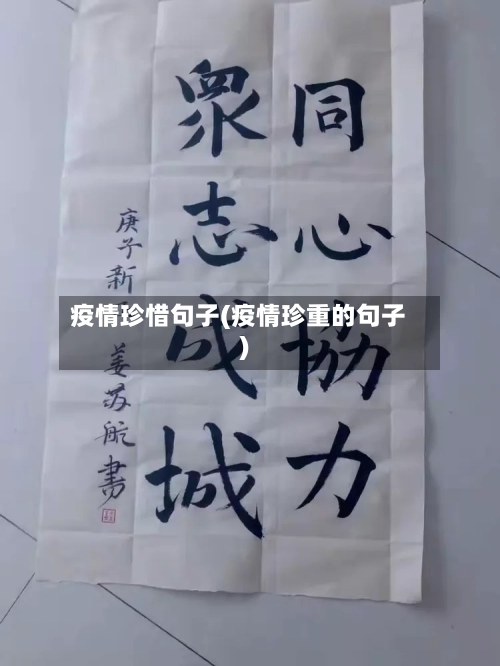 同心協力
眾志成城
庚子新
姜苏航書
疫情珍惜句子(疫情珍重的句子
)